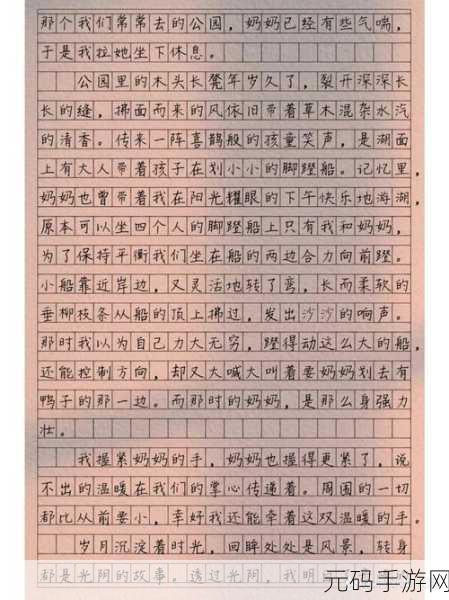 那个我们常常去的公园，奶奶已经有些气喘，
于是我拉她坐下休息。
公园里的木头长凳年岁久了，裂开深深长
长的缝，拂面而来的风依旧带着草木混杂水汽
的清香。传来一阵喜鹊般的孩童笑声，是湖面
上有大人带着孩子在划小小的脚蹬船。记忆里，
奶奶也曾带着我在阳光耀眼的下午快乐地游湖，
原本可以坐四个人的脚蹬船上只有我和奶奶，
为了保持平衡我们坐在船的两边合力向前蹬。
小船靠近岸边，又灵活地转了弯，长而柔软的
垂柳枝条从船的顶上拂过，发出沙沙的响声。
那时我以为自己力大无穷，蹬得动这么大的船，
还能控制方向，却又大喊大叫着要奶奶划去有
鸭子的那一边。而那时的奶奶，是那么身强力
壮。
我握紧奶奶的手，奶奶也握得更紧了，说
不出的温暖在我们的掌心传递着。周围的一切
都比从前要小，幸好我还能牵着这双温暖的手。
岁月沉淀着时光，回眸处处是风景，转身
都是光阴的故事。透过光阴，我明
元码手游网